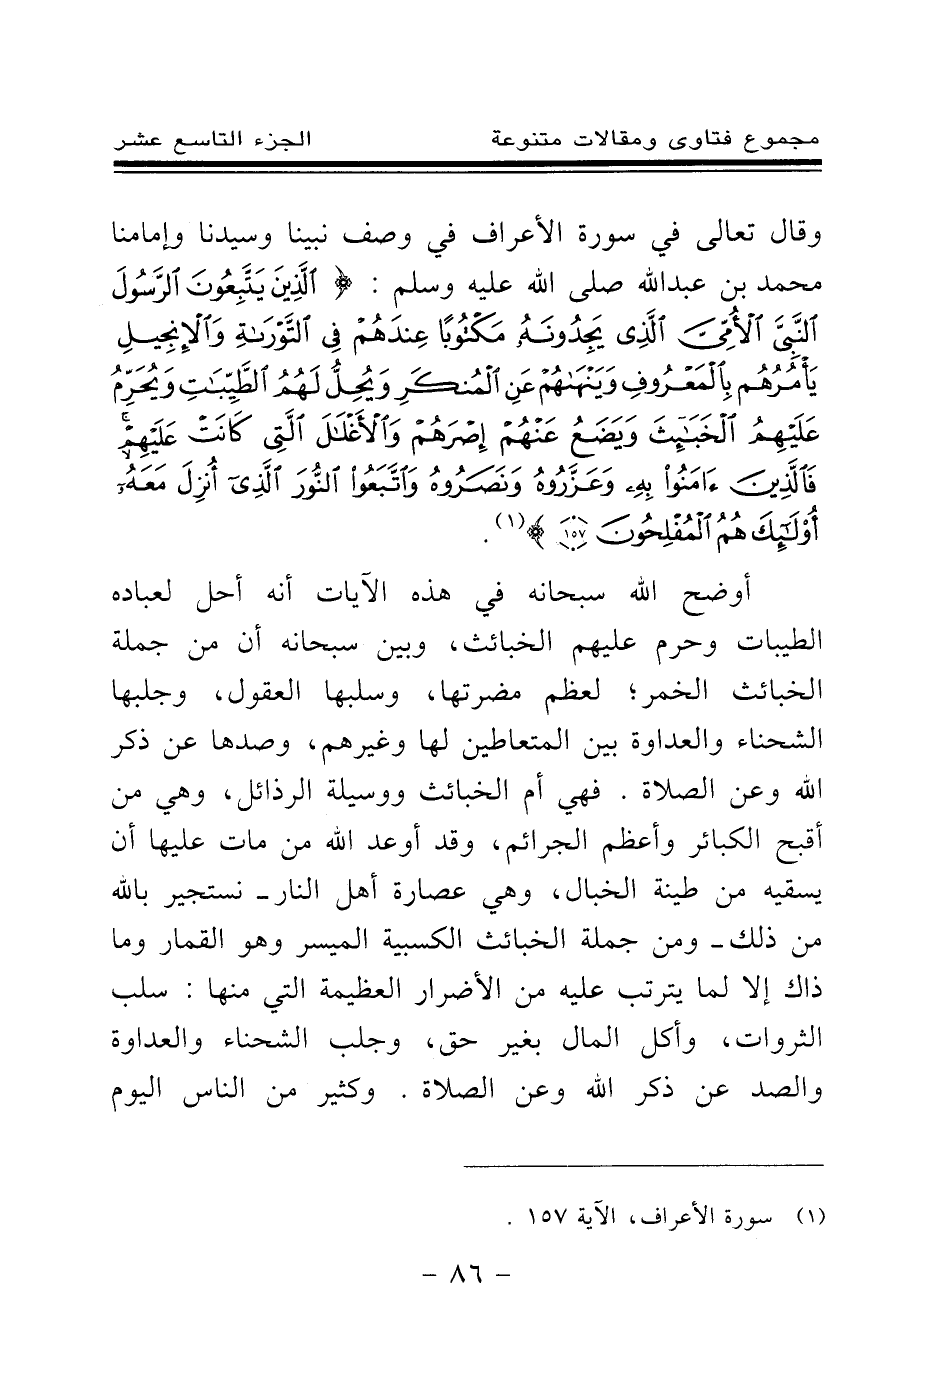 مجموع فتاوى ومقالات متنوعة الجزء التاسع عشر
وقال تعالى في سورة الأعراف في وصف نبينا وسيدنا وإمامنا
محمد بن عبدالله صلى الله عليه وسلم : ﴿ ٱلَّذِينَ يَتَّبِعُونَ ٱلرَّسُولَ
ٱلنَّبِىَّ ٱلْأُمِّىَّ ٱلَّذِى يَجِدُونَهُۥ مَكْتُوبًا عِندَهُمْ فِى ٱلتَّوْرَىٰةِ وَٱلْإِنجِيلِ
يَأْمُرُهُم بِٱلْمَعْرُوفِ وَيَنْهَىٰهُمْ عَنِ ٱلْمُنكَرِ وَيُحِلُّ لَهُمُ ٱلطَّيِّبَٰتِ وَيُحَرِّمُ
عَلَيْهِمُ ٱلْخَبَٰٓئِثَ وَيَضَعُ عَنْهُمْ إِصْرَهُمْ وَٱلْأَغْلَٰلَ ٱلَّتِى كَانَتْ عَلَيْهِمْ ۚ
فَٱلَّذِينَ ءَامَنُوا۟ بِهِۦ وَعَزَّرُوهُ وَنَصَرُوهُ وَٱتَّبَعُوا۟ ٱلنُّورَ ٱلَّذِىٓ أُنزِلَ مَعَهُۥٓ ۙ
أُو۟لَٰٓئِكَ هُمُ ٱلْمُفْلِحُونَ ١٥٧ ﴾(١).
أوضح الله سبحانه في هذه الآيات أنه أحل لعباده
الطيبات وحرم عليهم الخبائث، وبين سبحانه أن من جملة
الخبائث الخمر؛ لعظم مضرتها، وسلبها العقول، وجلبها
الشحناء والعداوة بين المتعاطين لها وغيرهم، وصدها عن ذكر
الله وعن الصلاة . فهي أم الخبائث ووسيلة الرذائل، وهي من
أقبح الكبائر وأعظم الجرائم، وقد أوعد الله من مات عليها أن
يسقيه من طينة الخبال، وهي عصارة أهل النار ـ نستجير بالله
من ذلك ـ ومن جملة الخبائث الكسبية الميسر وهو القمار وما
ذاك إلا لما يترتب عليه من الأضرار العظيمة التي منها : سلب
الثروات، وأكل المال بغير حق، وجلب الشحناء والعداوة
والصد عن ذكر الله وعن الصلاة . وكثير من الناس اليوم
(١) سورة الأعراف، الآية ١٥٧ .
– ٨٦ –